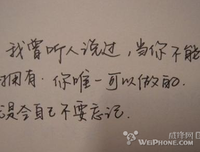 我曾听人说过，当你不能
拥有．你唯一可以做的．
是令自己不要忘记．
威锋网
WEIPHONE.COM